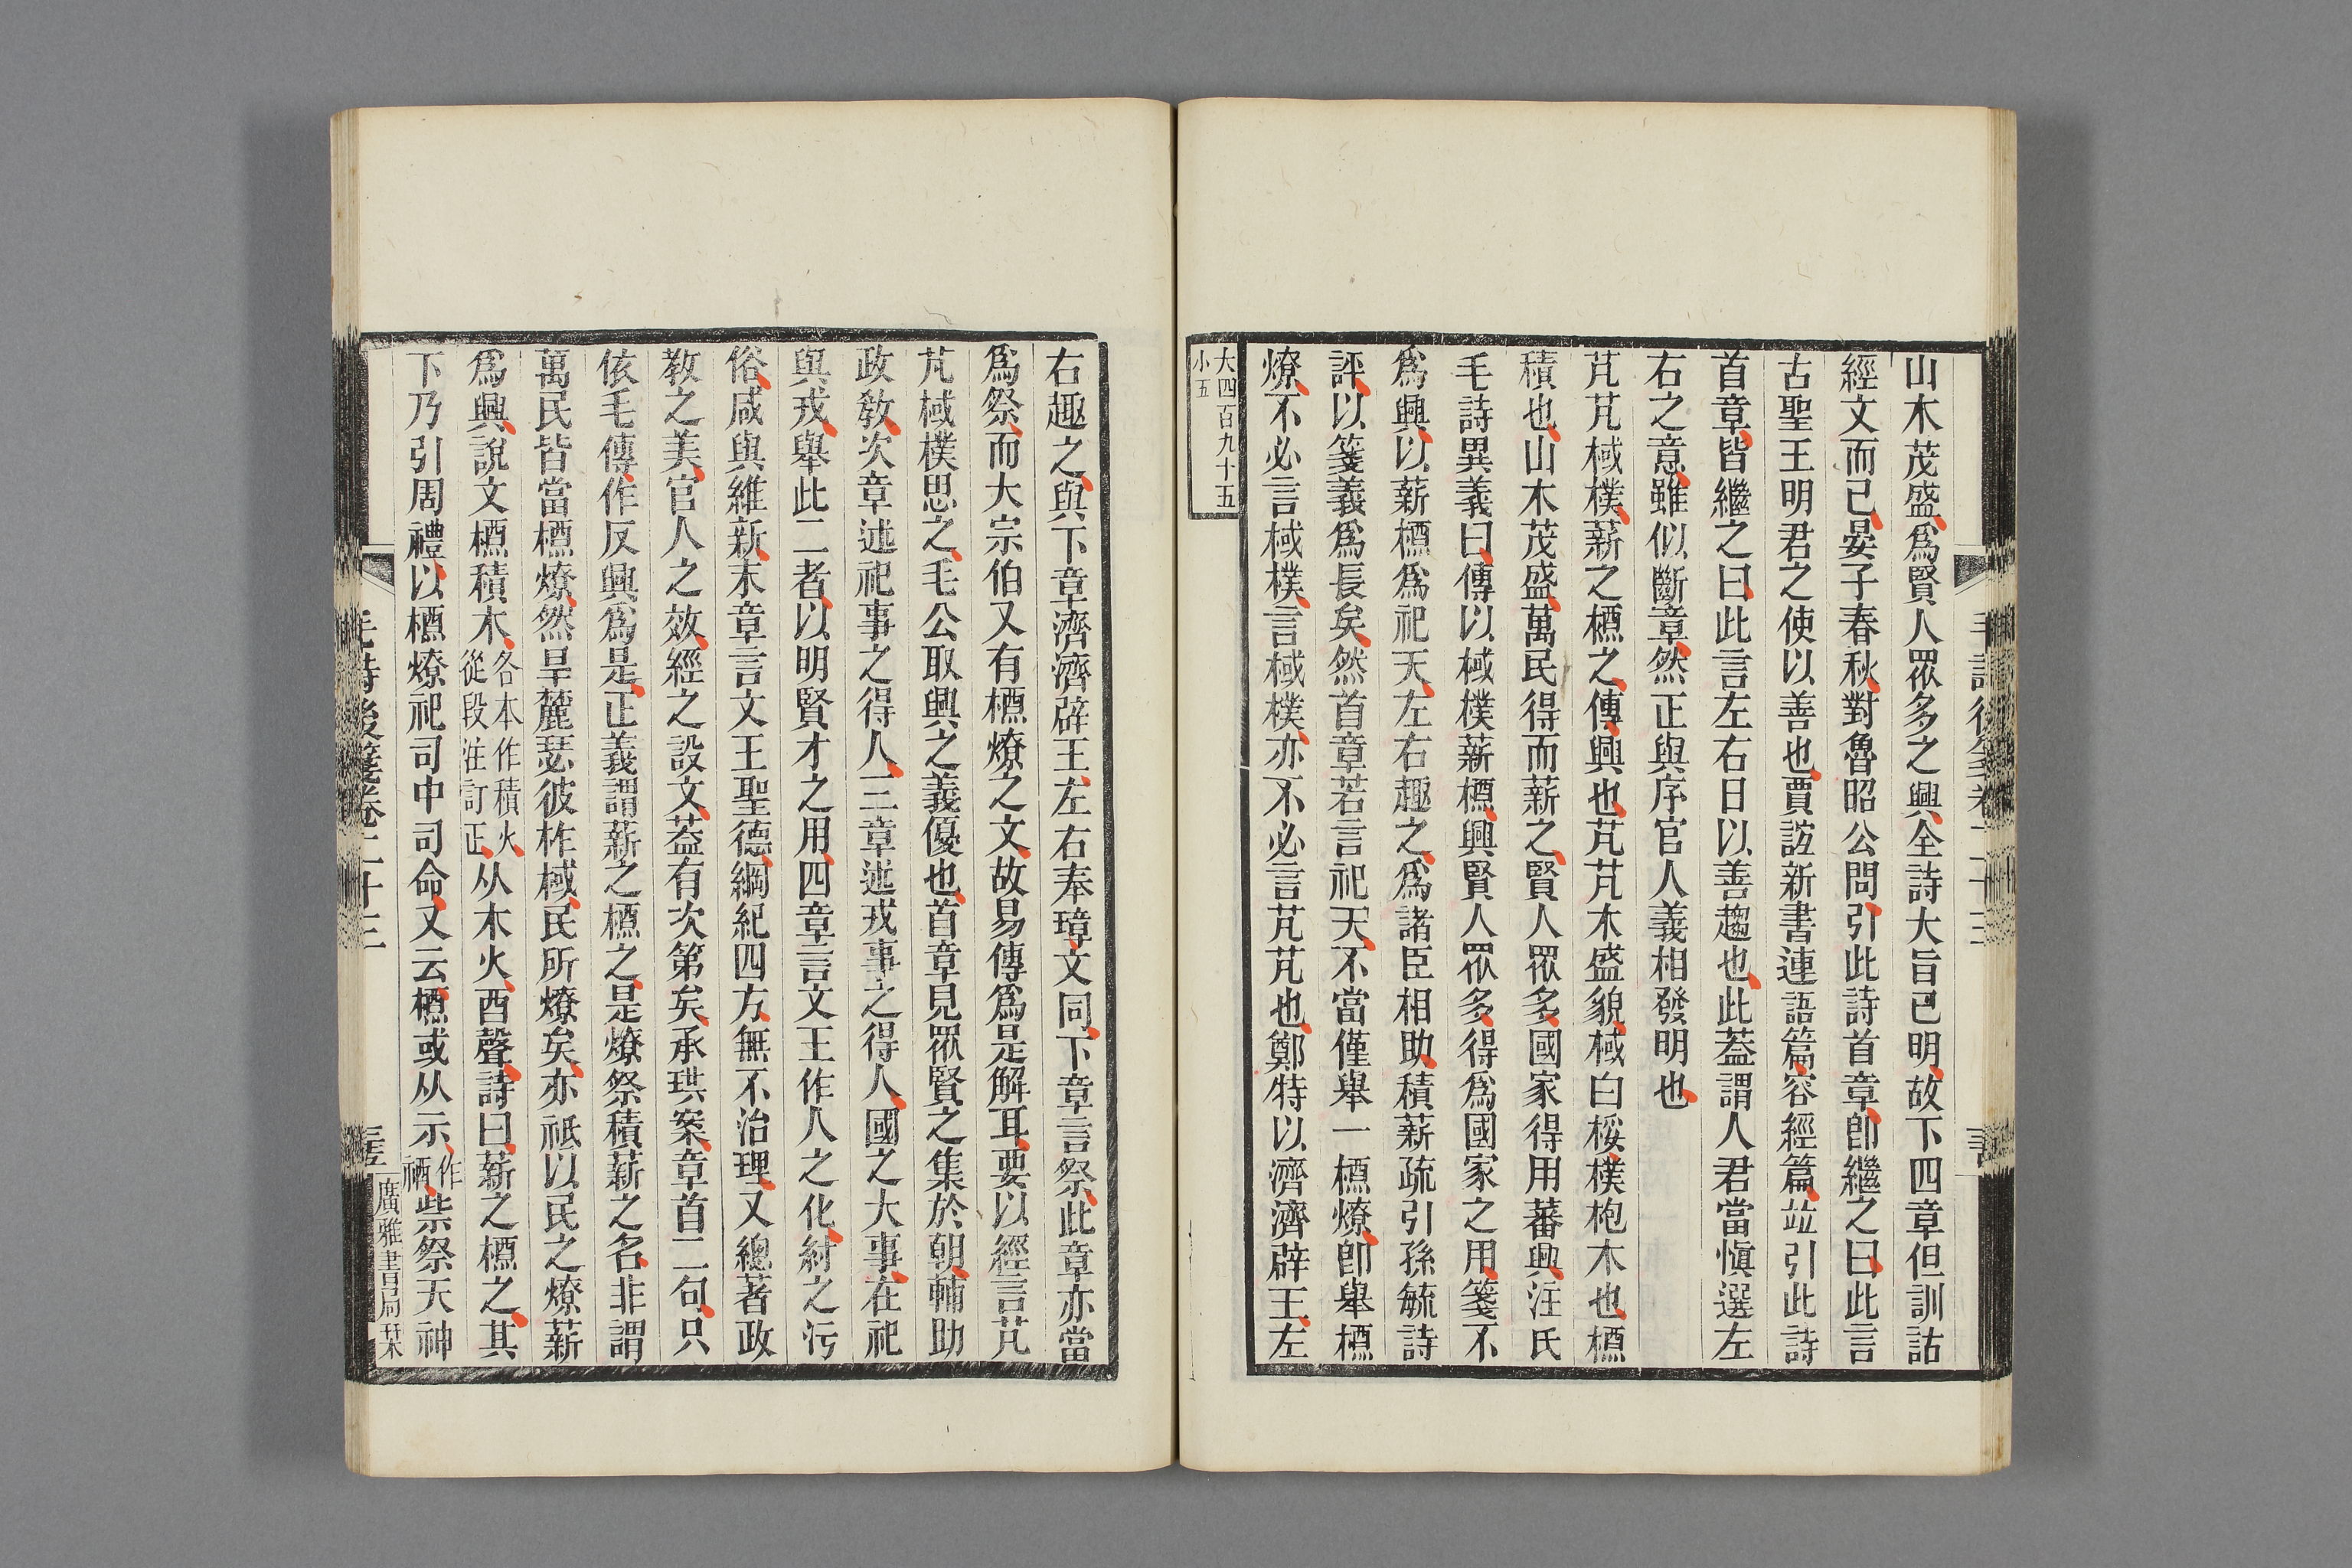 山木茂盛爲賢人眾多之興全詩大旨已明故下四章但訓詁
經文而已晏子春秋對魯昭公問引此詩首章卽繼之曰此言
古聖王明君之使以善也賈誼新書連語篇容經篇竝引此詩
首章皆繼之曰此言左右日以善趨也此蓋謂人君當慎選左
右之意雖似斷章然正與序官人義相發明也
芃芃棫樸薪之槱之傳興也芃芃木盛貌棫白桵樸枹木也槱
積也山木茂盛萬民得而薪之賢人眾多國家得用蕃興汪氏
毛詩異義曰傳以棫樸薪槱興賢人眾多得爲國家之用箋不
爲興以薪槱爲祀天左右趣之爲諸臣相助積薪疏引孫毓詩
評以箋義爲長矣然首章若言祀天不當僅舉一槱燎卽舉槱
燎不必言棫樸言棫樸亦不必言芃芃也鄭特以濟濟辟王左
大四百九十五
小五
右趣之與下章濟濟辟王左右奉璋文同下章言祭此章亦當
爲祭而大宗伯又有槱燎之文故易傳爲是解耳要以經言芃
芃棫樸思之毛公取興之義優也首章見眾賢之集於朝輔助
政敎次章述祀事之得人三章述戎事之得人國之大事在祀
與戎舉此二者以明賢才之用四章言文王作人之化紂之污
俗咸與維新末章言文王聖德綱紀四方無不治理又總著政
敎之美官人之效經之設文蓋有次第矣承珙案章首二句只
依毛傳作反興爲是正義謂薪之槱之是燎祭積薪之名非謂
萬民皆當槱燎然旱麓瑟彼柞棫民所燎矣亦祗以民之燎薪
爲興說文槱積木各本作積火從段注訂正从木火酉聲詩曰薪之槱之其
下乃引周禮以槱燎祀司中司命又云槱或从示作䄛柴祭天神
毛詩後箋卷二十三
廣雅書局栞